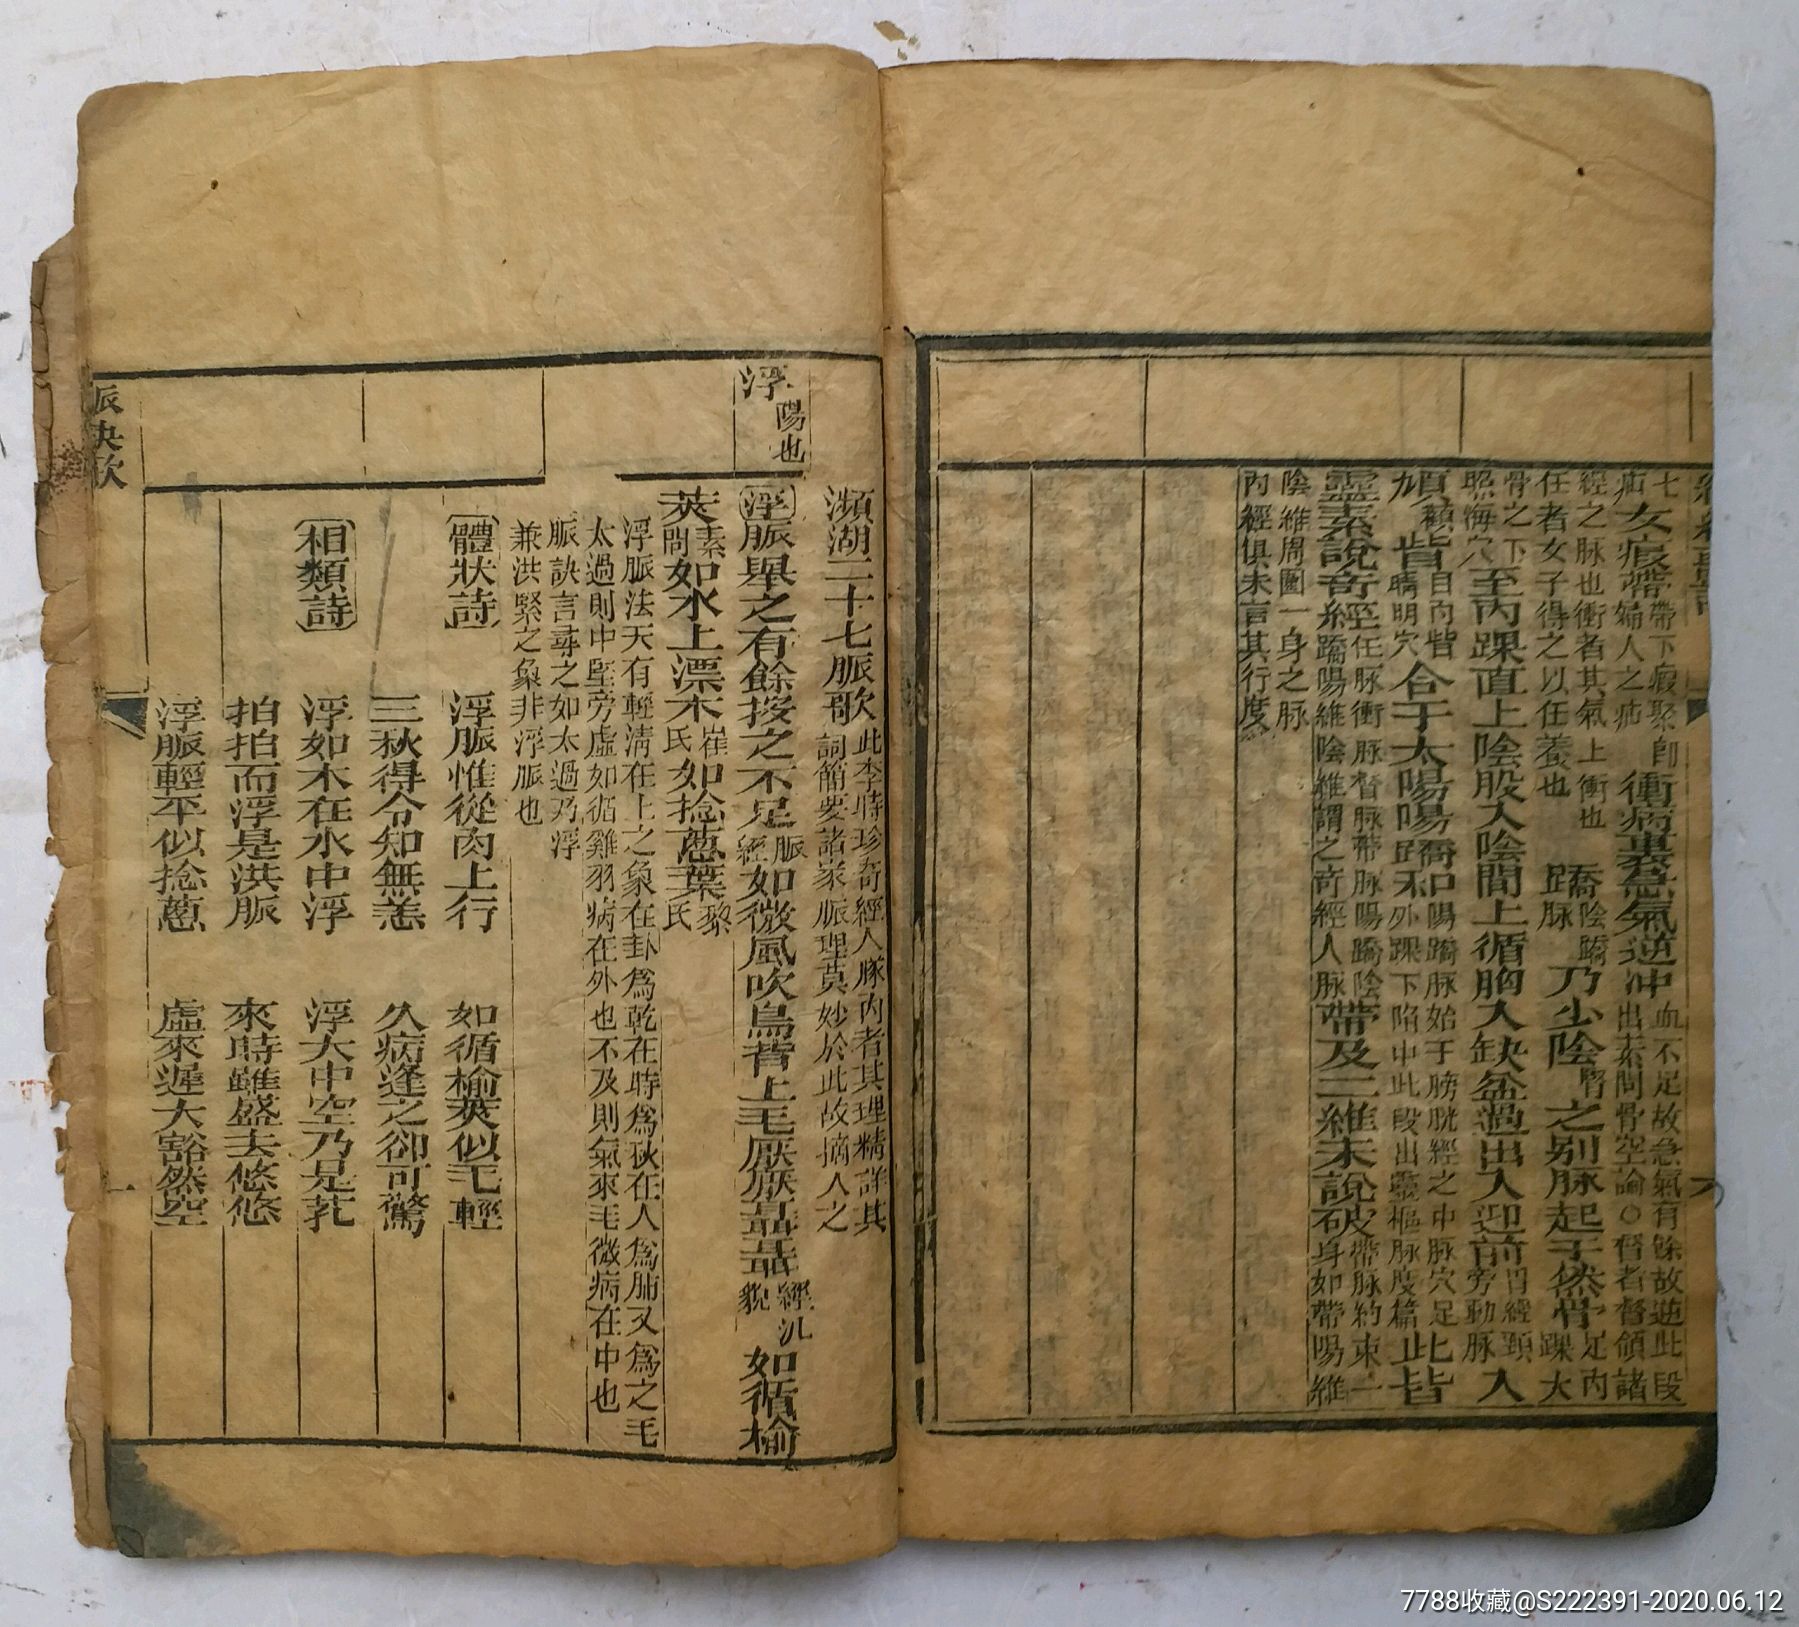 七
疝女瘕帶帶下瘕聚即婦人之疝
衝病裏急氣逆冲血不足故急氣有餘故逆此段出素問骨空論○督者督領諸
經之脉也衝者其氣上衝也
任者女子得之以任養也
蹻陰蹻脉乃少陰腎之別脉起于然骨足內踝大
骨之下照海穴至內踝直上陰股入陰間上循胸入缺盆過出人迎前胃經頸旁動脉入
頄顴眥目內眥睛明穴合于太陽陽蹻和陽蹻脉始于膀胱經之申脉穴足外踝下陷中此段出靈樞脉度篇此皆
靈素說奇經任脉衝脉督脉帶脉陽蹻陰蹻陽維陰維謂之奇經八脉帶及二維未說破帶脉約束一身如帶陽維
陰維周圍一身之脉
內經俱未言其行度
浮 陽也
瀕湖二十七脈歌此李時珍奇經八脉內者其理精詳其詞簡要諸家脈理莫妙於此故摘入之
浮脈舉之有餘按之不足脈經如微風吹鳥背上毛厭厭聶聶如循榆
莢素問如水上漂木崔氏如捻蔥葉黎氏
浮脈法天有輕清在上之象在卦爲乾在時爲秋在人爲肺又爲之毛
太過則中堅旁虛如循雞羽病在外也不及則氣來毛微病在中也
脈訣言尋之如太過乃浮
兼洪緊之象非浮脈也
體狀詩
浮脈惟從肉上行 如循榆莢似毛輕
三秋得令知無恙 久病逢之卻可驚
相類詩
浮如木在水中浮 浮大中空乃是芤
拍拍而浮是洪脈 來時雖盛去悠悠
浮脈輕平似捻蔥 虛來遲大豁然空
脈訣歌
一
7788收藏@S222391-2020.06.12